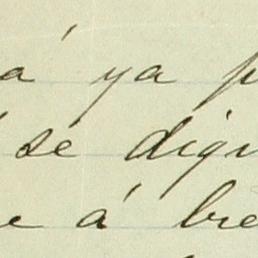 á ya p
se dign
e á bre